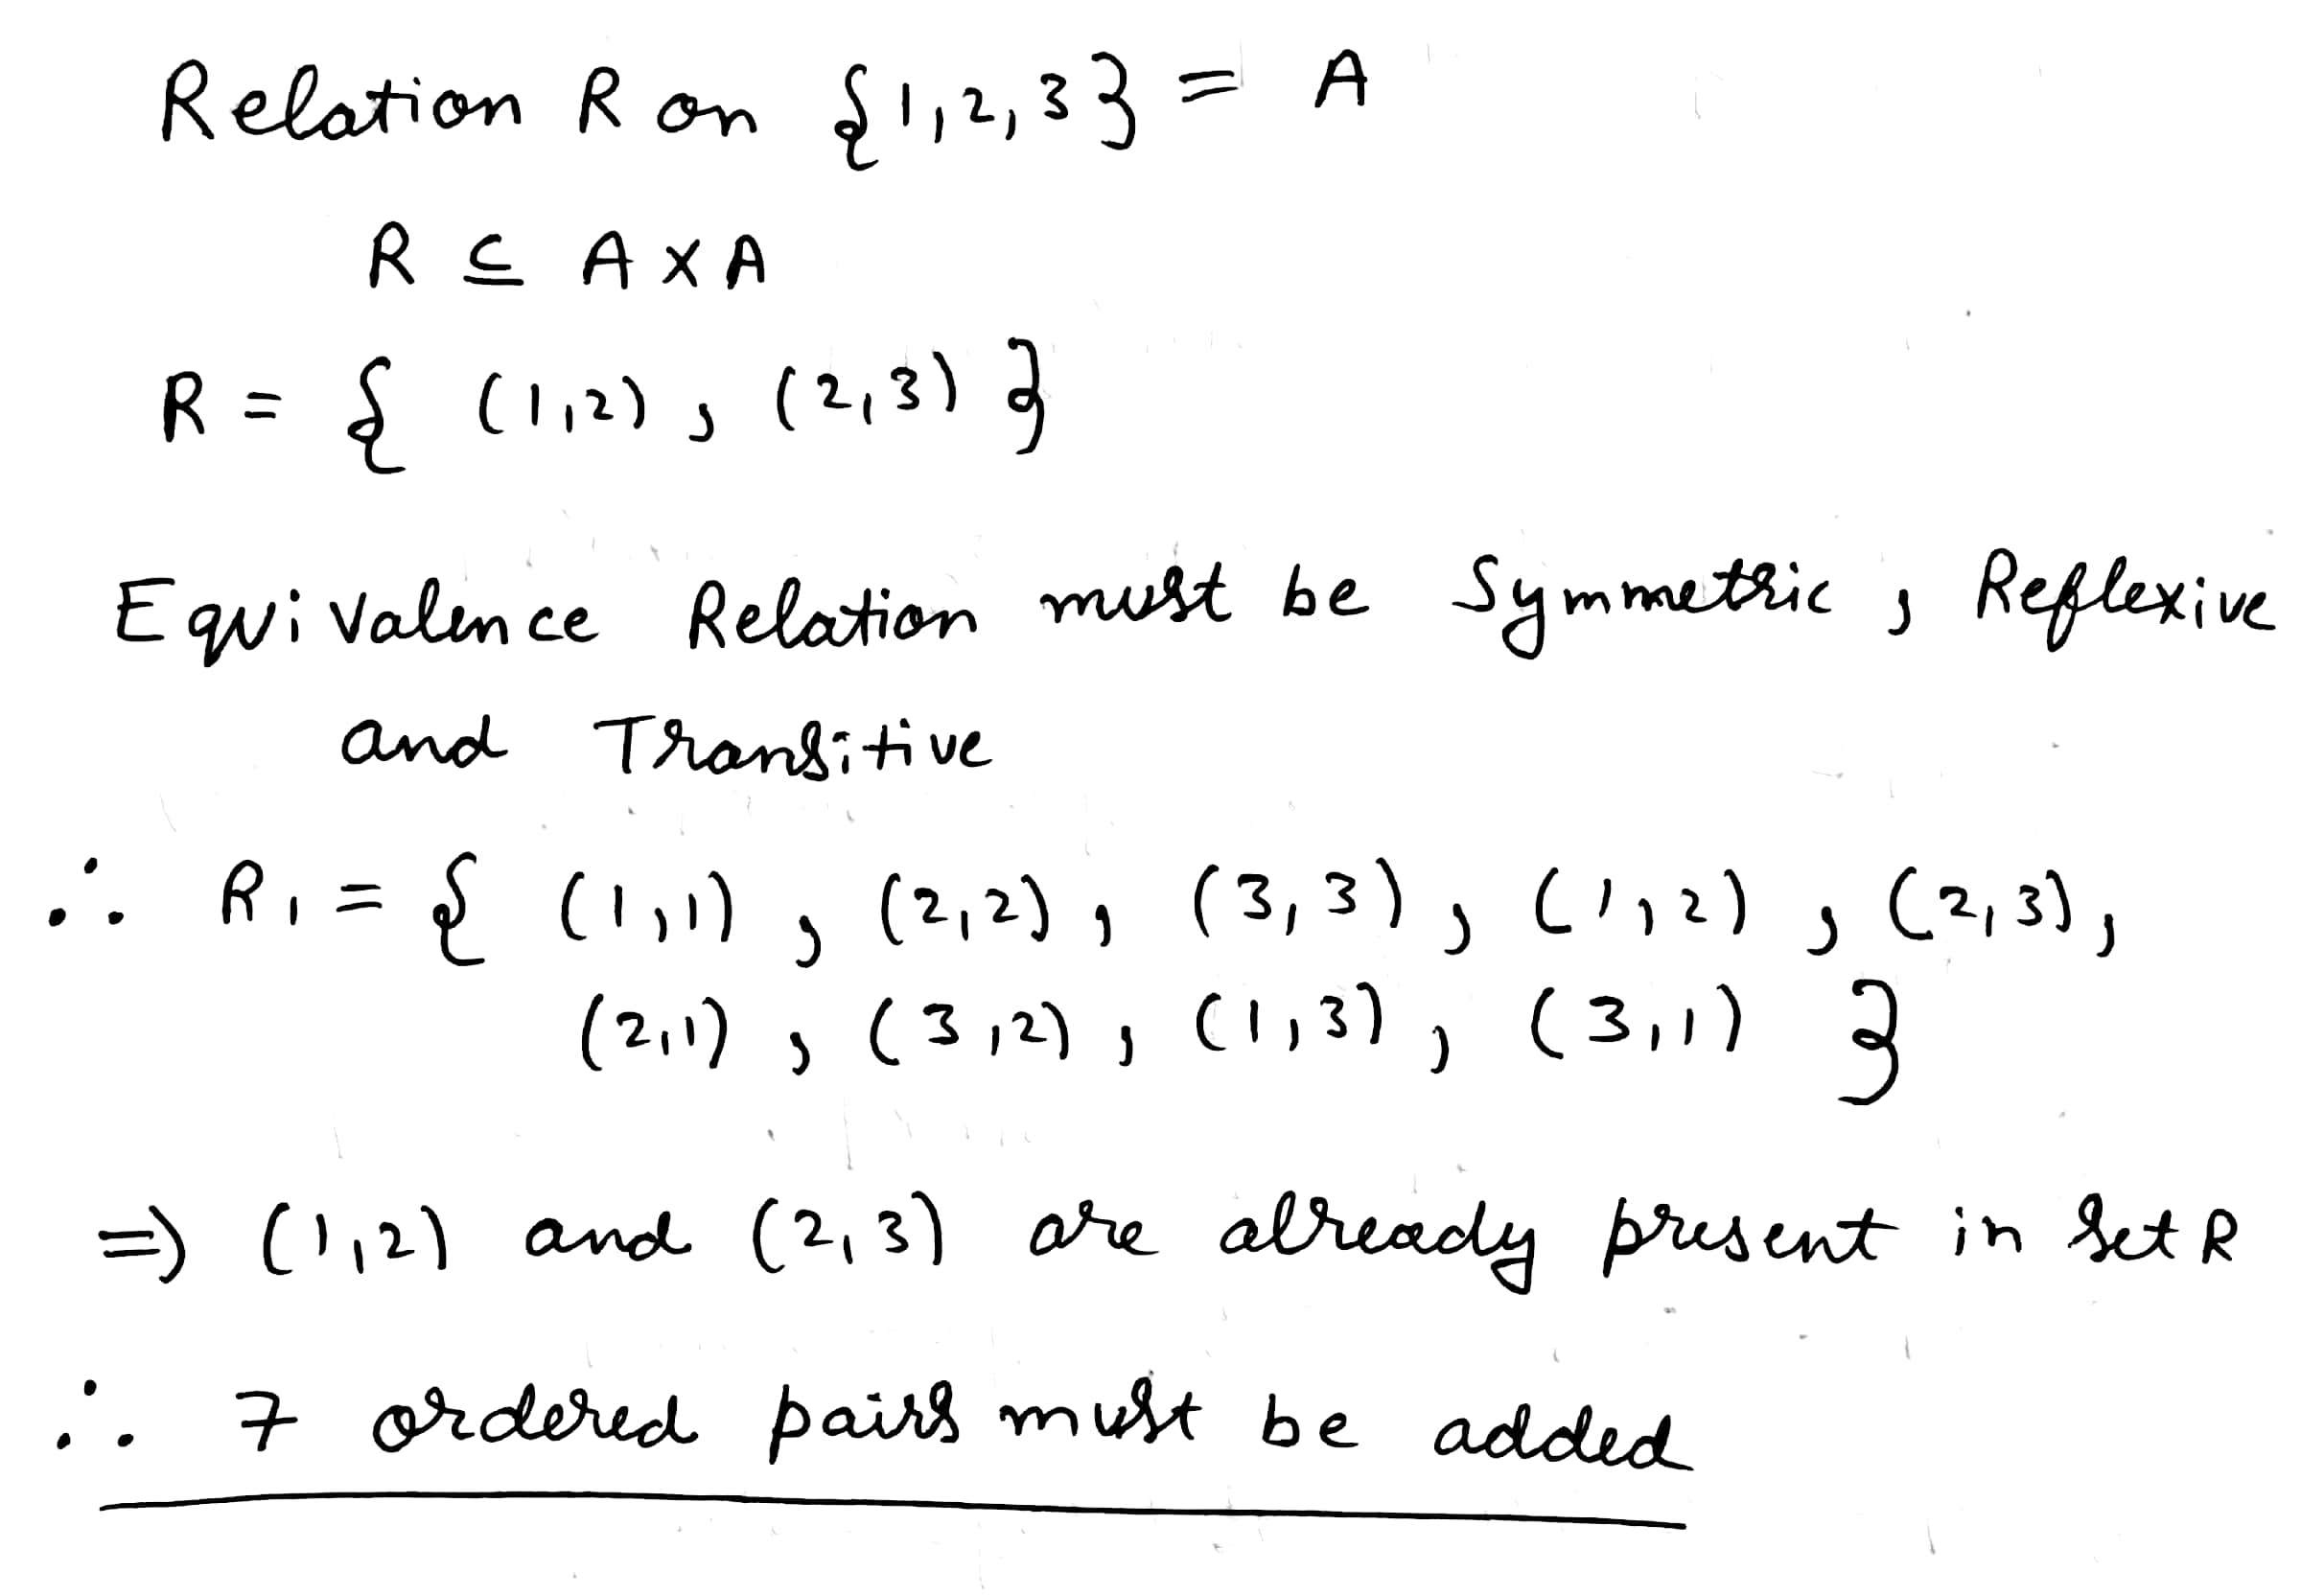 Relation R on {1,2,3} = A
R ⊆ A×A
R = { (1,2), (2,3) }
Equivalence Relation must be Symmetric, Reflexive
and Transitive
∴ R₁ = { (1,1), (2,2), (3,3), (1,2), (2,3),
(2,1), (3,2), (1,3), (3,1) }
⇒ (1,2) and (2,3) are already present in set R
∴ 7 ordered pairs must be added